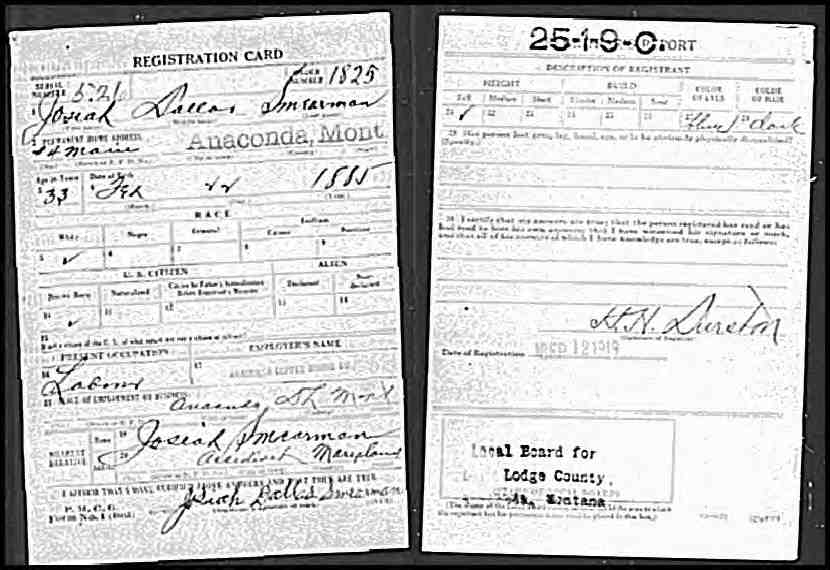 REGISTRATION CARD
SERIAL NUMBER 521
ORDER NUMBER 1825
Josiah Dallas Smearman
PERMANENT HOME ADDRESS
Main Anaconda, Mont
Age in Years Date of Birth
33 Feb 22 1885
(Month) (Day) (Year)
RACE
White Negro Oriental Indian
Citizen Noncitizen
5 ✓ 6 7 8 9
U. S. CITIZEN ALIEN
Native Born Naturalized Citizen by Father's Naturalization Before Registrant's Majority Declarant Non-declarant
10 ✓ 11 12 13 14
15
If not a citizen of the U. S., of what nation are you a citizen or subject?
PRESENT OCCUPATION EMPLOYER'S NAME
16 Laborer 17
PLACE OF EMPLOYMENT OR BUSINESS
Anaconda Mont
NEAREST RELATIVE
Name 19 Josiah Smearman
Address 20 Accident Maryland
I AFFIRM THAT I HAVE VERIFIED ABOVE ANSWERS AND THAT THEY ARE TRUE
P. M. G. O.
Form No. 1 (Red)
Josiah Dallas Smearman
25-1-9-C.
REPORT
DESCRIPTION OF REGISTRANT
HEIGHT BUILD COLOR OF EYES COLOR OF HAIR
Tall Medium Short Slender Medium Stout
21 ✓ 22 23 24 25 26 27 Blue 28 Dark
29 Has person lost arm, leg, hand, eye, or is he obviously physically disqualified?
(Specify.)
30 I certify that my answers are true; that the person registered has read or has
had read to him his own answers; that I have witnessed his signature or mark,
and that all of his answers of which I have knowledge are true, except as follows:
H. H. Durston
Date of Registration 12 1918
Local Board for
Lodge County,
Montana